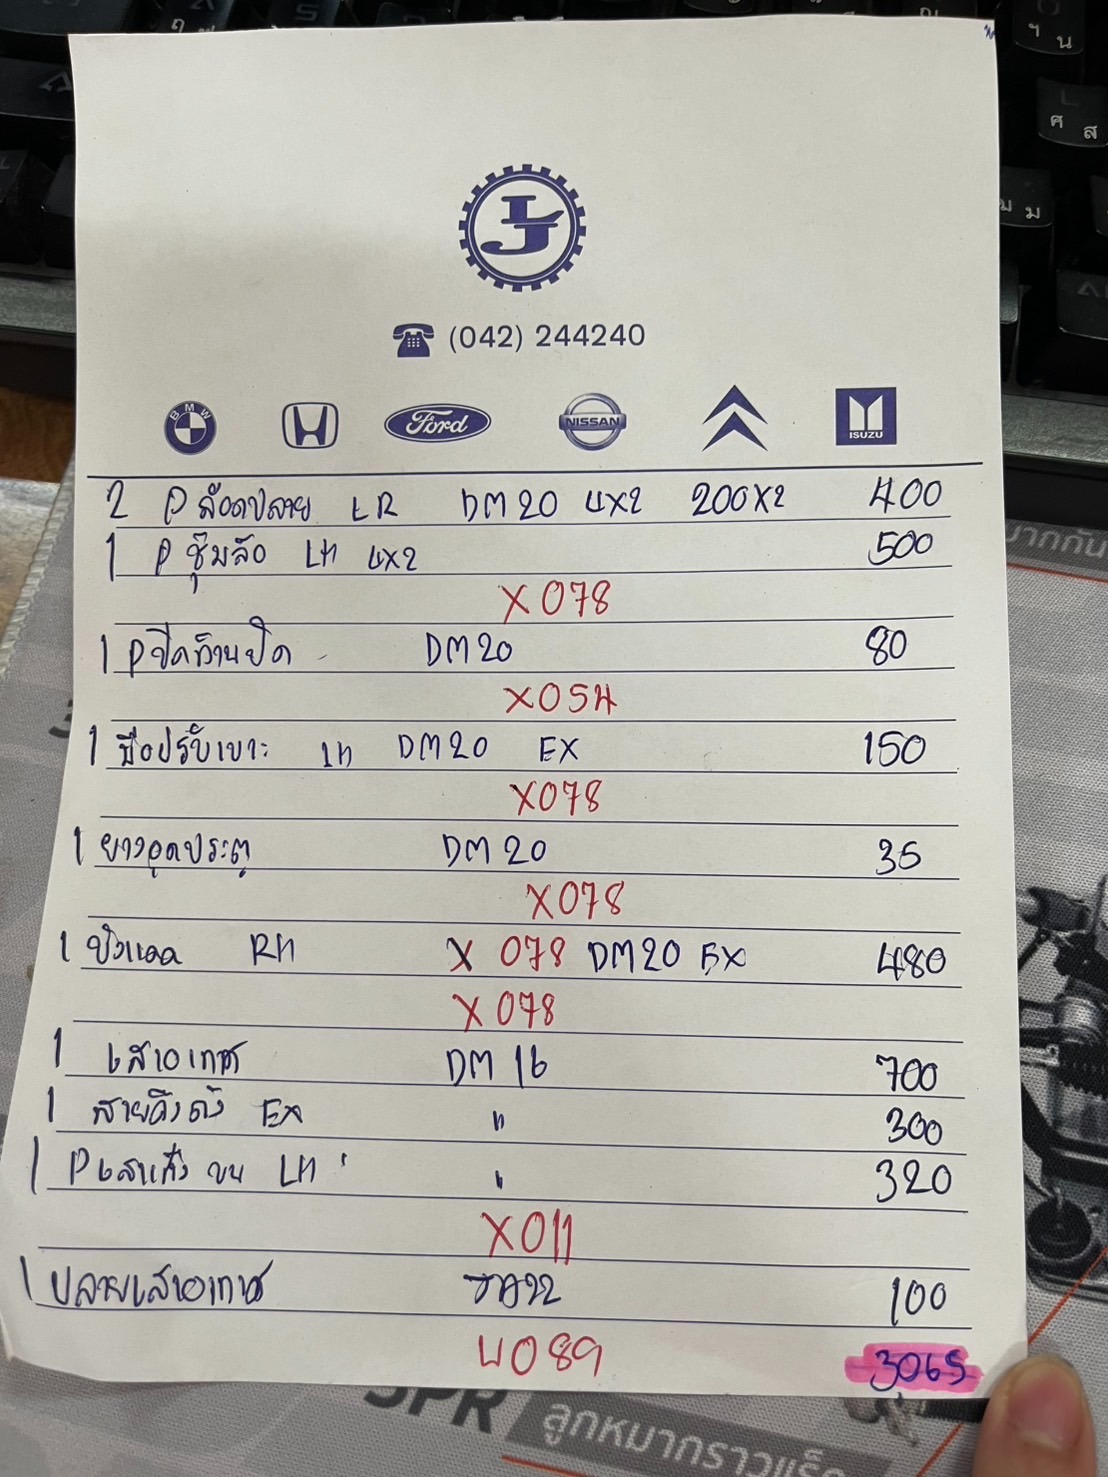 (042) 244240
BMW
Ford
NISSAN
ISUZU
2 P ล๊อคปลาย LR DM20 4X2 200X2 400
1 P ซุ้มล้อ LH 4x2 500
X078
1 P DM20 80
X054
1 มือปรับเบาะ LH DM20 EX 150
X078
1 ยางอุดประตู DM20 35
X078
1 บังแดด RH X 078 DM20 EX 480
X078
1 เสาอากาศ DM 16 700
1 สายดึงถัง EX " 300
1 P เสาเก๋ง บน LH " 320
X011
1 ปลายเสาอากาศ 100
W089
3065
SPR ลูกหมากราวแร็ค
มากกัน